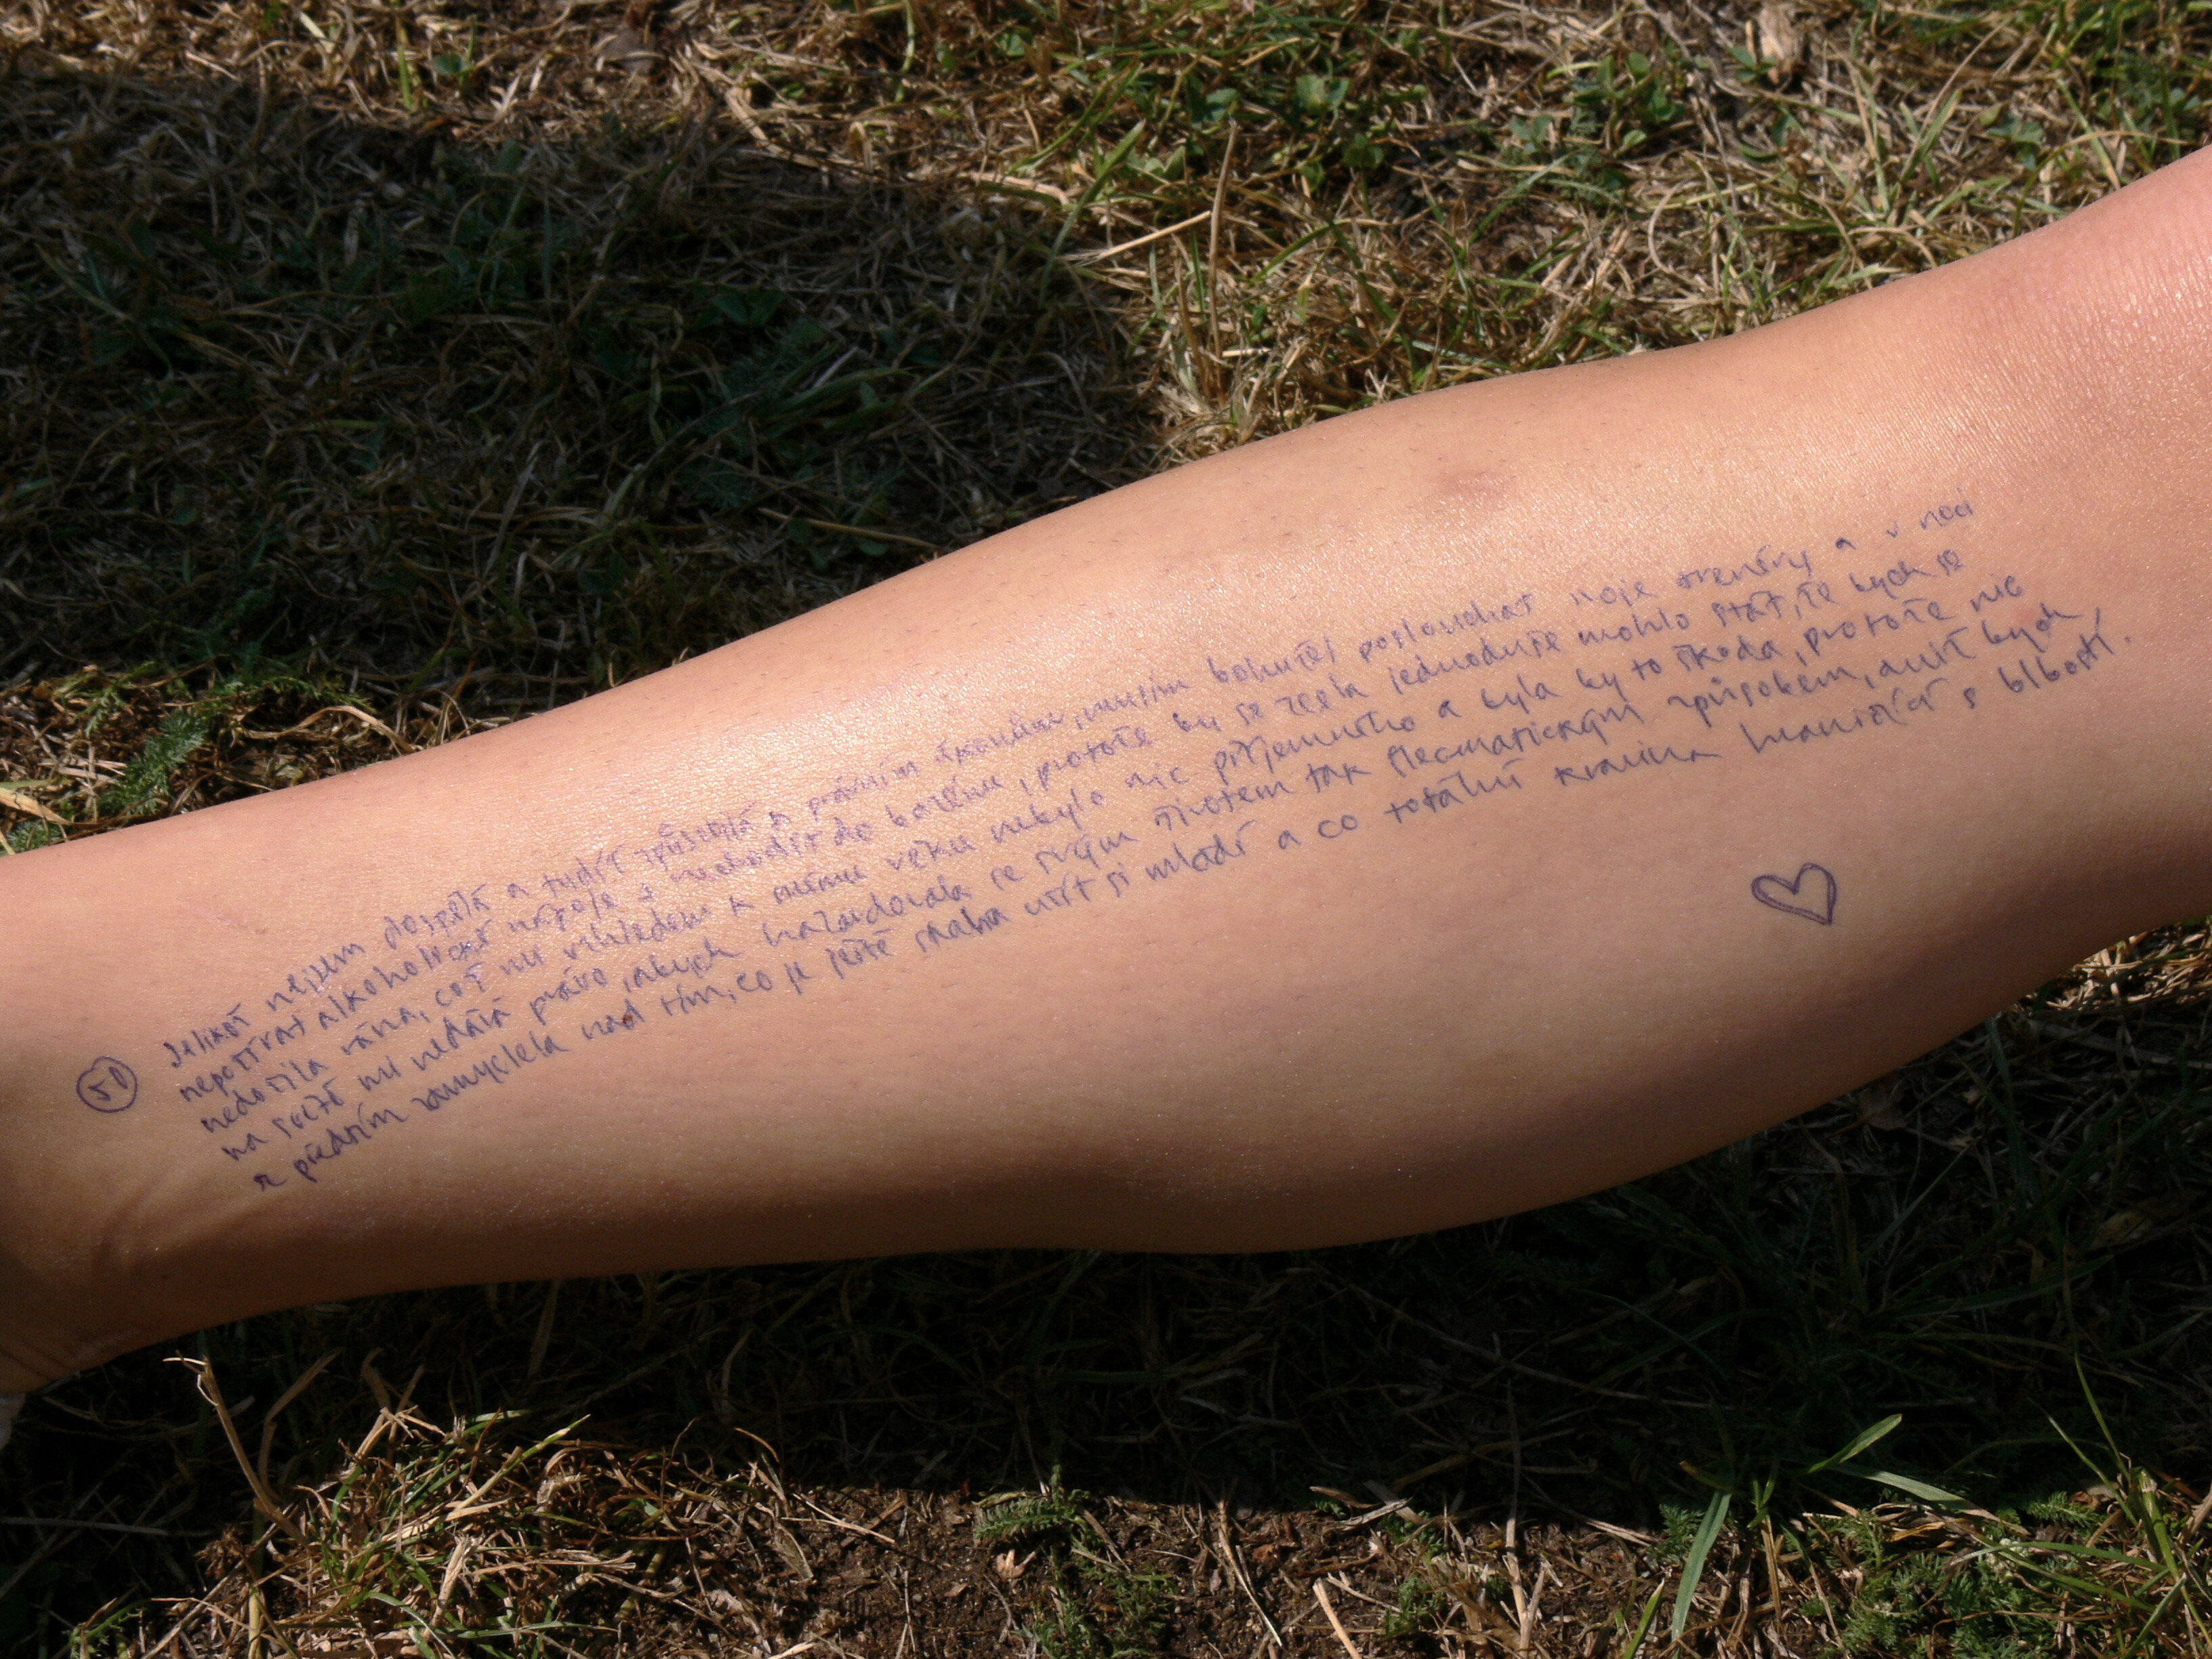 50 Jelikož nejsem dospělá a tudíž způsobilá k právním úkonům, musím bohužel poslouchat moje trenéry a v noci
nepožívat alkoholické nápoje a nechodit do bazénu, protože by se zcela jednoduše mohlo stát, že bych se
nedožila rána, což mi vzhledem k mému věku nebylo nic příjemného a byla by to škoda, protože nic
na světě mi nedává právo, abych hazardovala se svým životem tak flegmatickým způsobem, aniž bych
se předtím zamyslela nad tím, co je ještě snaha užít si mládí a co totální kravina hraničící s blbostí.